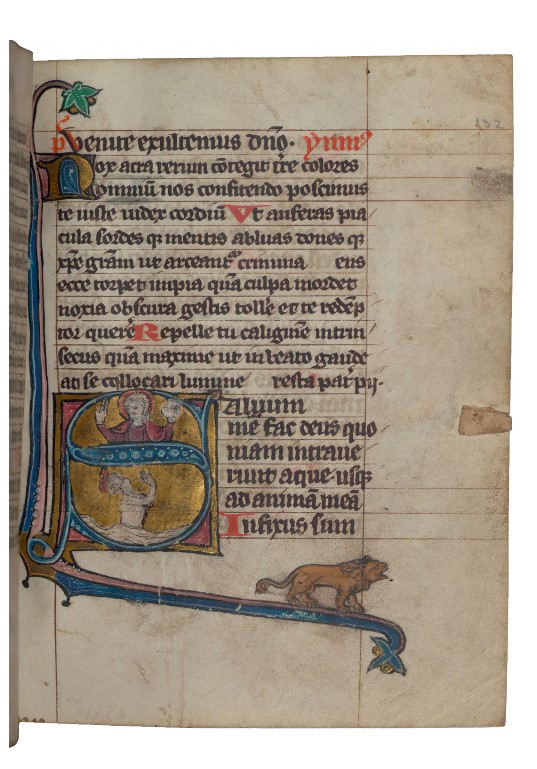 Venite exultemus dn̄o. Ymn⁹
Nox atra rerum cōtegit tr̄e colores
omniū nos confitendo poscimus
te iuste iudex cordiū Vt auferas pia
cula sordes q̢ mentis abluas dones q̢
xp̄e gr̄am ut arceant᷑ crimina ens
ecce torpet impia quā culpa mordet
noxia obscura gestis tolle et te redēp
tor querer̄e Repelle tu caliginē intrin
secus quā maxime ut in beato gaude
at se collocari lumine resta pat̄ pij.
Saluum
me fac deus quo
niam intraue
runt aque usq̢
ad animā meā
Infixus sum